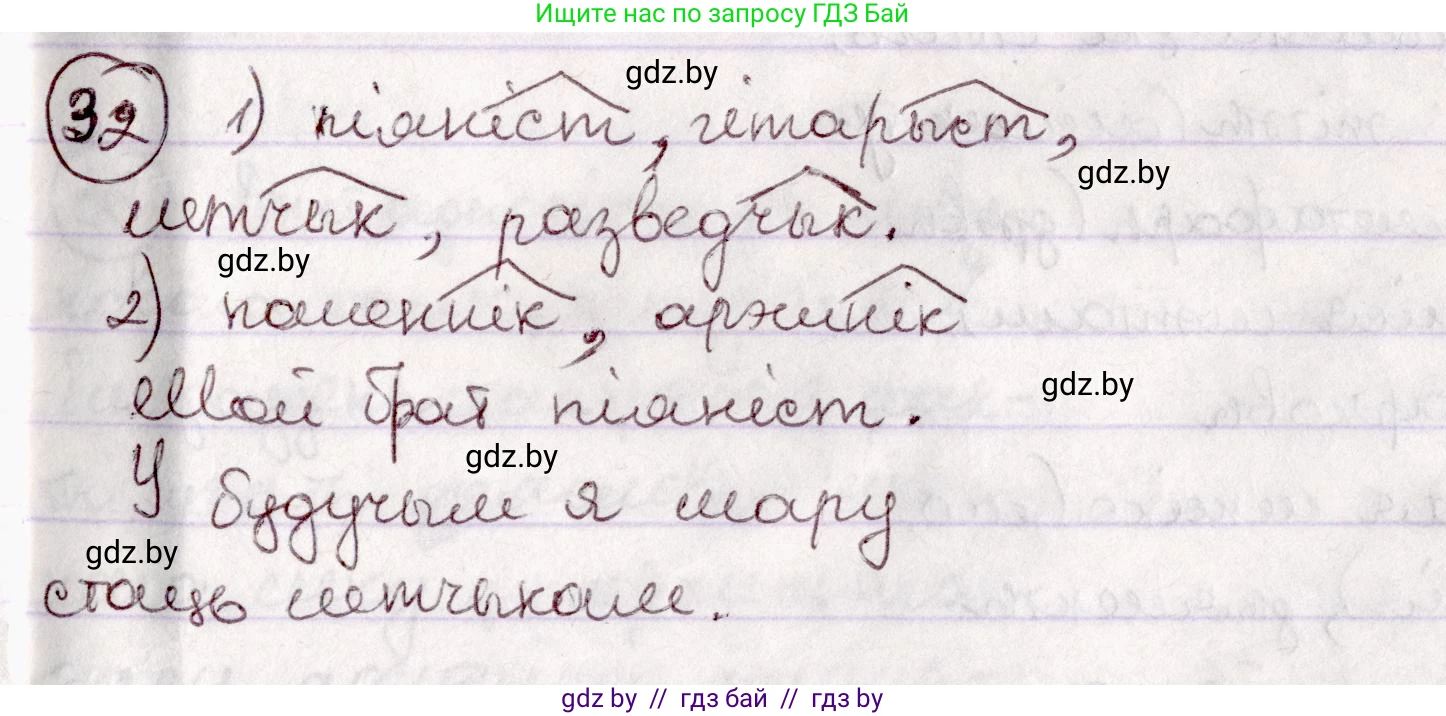 Ищите нас по запросу ГДЗ Бай
32 1) піяніст, гітарыст,
gdz.by
gdz.by
лётчык, разведчык.
gdz.by
2) каменшчык, аржннік
Мой брат піяніст.
gdz.by
gdz.by
У будучым я мару
gdz.by
стаць лётчыкам.
gdz.by // гдз бай // гдз by